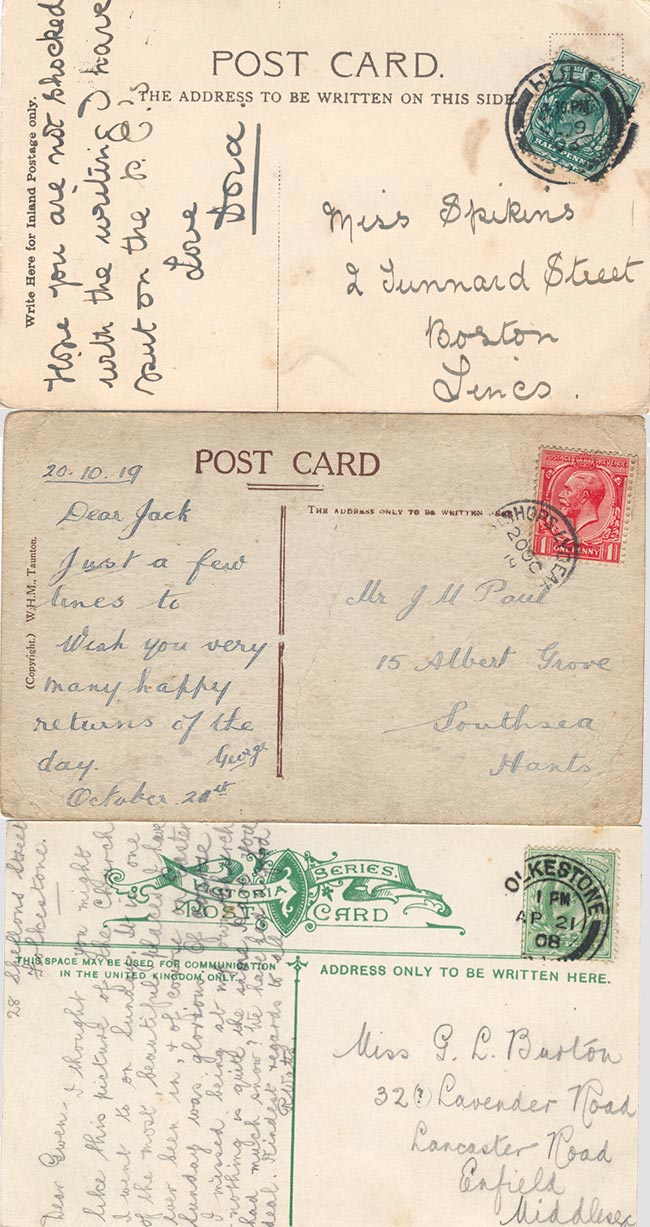 POST CARD.
THE ADDRESS TO BE WRITTEN ON THIS SIDE.
Write Here for Inland Postage only.
Hope you are not shocked
with the writing I have
put on the p.c.'s
Love
Dora.
HULL
HALF PENNY
Miss Spikins
2 Tunnard Street
Boston
Lincs.
POST CARD
THE ADDRESS ONLY TO BE WRITTEN
(Copyright.) W.H.M., Taunton.
20.10.19
Dear Jack
Just a few
lines to
Wish you very
many happy
returns of the
day. George
October 21st
POSTAGE REVENUE
1 ONE PENNY 1
20 OC
Mr J M Paul
15 Albert Grove
Southsea
Hants
VICTORIA SERIES.
POST CARD
THIS SPACE MAY BE USED FOR COMMUNICATION
IN THE UNITED KINGDOM ONLY.
ADDRESS ONLY TO BE WRITTEN HERE.
28 Shellons Street
Folkestone.
Dear Gwen,- I thought you might
like this picture of the Church
I went to on Sunday. It is one
of the most beautiful places I have
ever been in, & of course Easter
Sunday was glorious. Of course
I missed being at my own church
nothing is quite the same. Have you
had much snow? We have had a good
deal. Kindest regards to all
OLKESTONE
1 PM
AP 21
08
Miss G. L. Burton
32(?) Lavender Road
Lancaster Road
Enfield
Middlesec